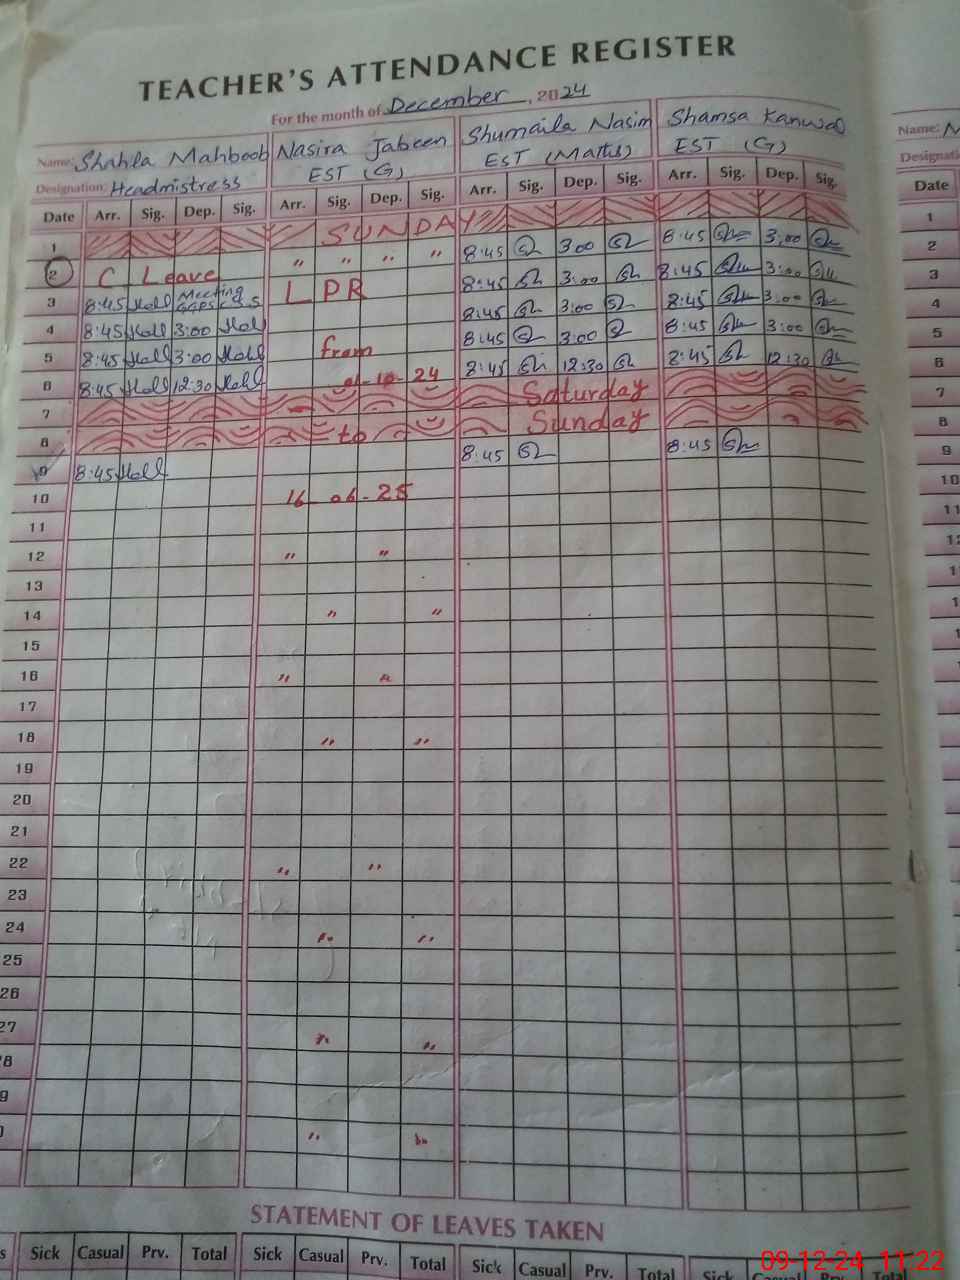 TEACHER'S ATTENDANCE REGISTER
For the month of December, 2024
Name: Shahla Mahboob Nasira Jabeen Shumaila Nasim Shamsa Kanwal Name: M
Designation: Headmistress EST (G) EST (Maths) EST (G) Designati
Date Arr. Sig. Dep. Sig. Arr. Sig. Dep. Sig. Arr. Sig. Dep. Sig. Arr. Sig. Dep. Sig. Date
1 SUNDAY 1
2 C Leave " " " " 8:45 3:00 8:45 3:00 2
3 8:45 Meeting LPR 8:45 3:00 8:45 3:00 3
4 8:45 3:00 8:45 3:00 8:45 3:00 4
5 8:45 3:00 from 8:45 3:00 8:45 3:00 5
6 8:45 12:30 24 8:45 12:30 8:45 12:30 6
7 Saturday 7
8 to Sunday 8
9 8:45 8:45 8:45 9
10 16-06-25 10
11 11
12 " " 12
13 1
14 " " 1
15 1
16 " " 1
17
18 " "
19
20
21
22 " "
23
24 " "
25
26
27 " "
8
9
" "
STATEMENT OF LEAVES TAKEN
s Sick Casual Prv. Total Sick Casual Prv. Total Sick Casual Prv. Total Sick Casual Prv. Total
09-12-24 11:22